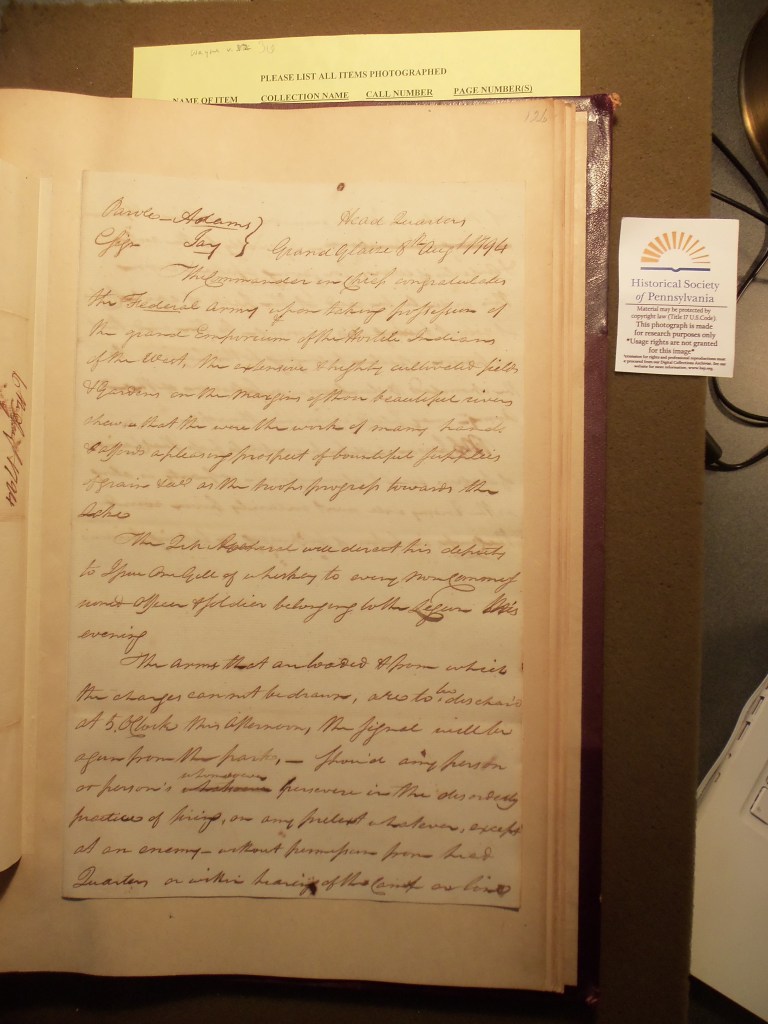 Wayne v. 32
PLEASE LIST ALL ITEMS PHOTOGRAPHED
NAME OF ITEM COLLECTION NAME CALL NUMBER PAGE NUMBER(S)
126
Parole - Adams
C Sign Jay
Head Quarters
Grand Glaize 8th Augt 1794
The Commander in Chief congratulates
the Federal Army upon taking possession of
the grand Emporium of the Hostile Indians
of the West, the extensive & highly cultivated fields
& Gardens on the Margins of those beautiful rivers
shew us that the were the work of many hands
& affords a pleasing prospect of bountiful supplies
of grain &ca as the troops progress towards the
Lake
The Qr Mr General will direct his deputy
to Issue One Gill of whiskey to every Non Commis
sioned Officer & Soldier belonging to the Legion this
evening
The Arms that are loaded & from which
the charges cannot be drawn, are to be dischard
at 5 O'Clock this Afternoon, the signal will be
a gun from the park, - Should any person
or person's whomsoever persevere in the disorderly
practice of firing, on any pretext whatever, except
at an enemy - without permission from head
Quarters or within hearing of the Camp or line
Historical Society
of Pennsylvania
Material may be protected by
copyright law (Title 17 U.S.Code)
This photograph is made
for research purposes only
*Usage rights are not granted
for this image*